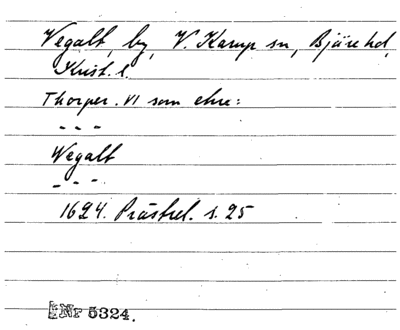 Vegalt, by, V. Karup sn, Bjäre hd,
Krist. l.
Thorper. VI som elre:
- - -
Wegalt
- - -
1624. Prästrel. s. 25
Nr 5324.